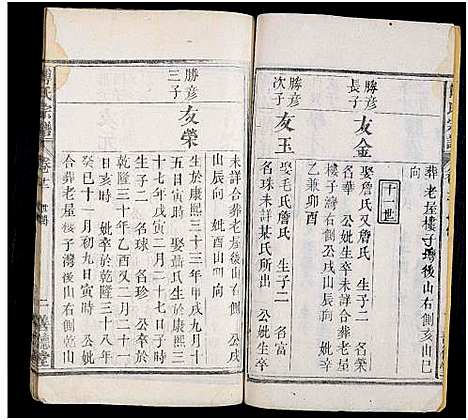 葬老屋樓子塆後山右側亥山巳
向
十一世
勝彥
長子
友金
娶詹氏又詹氏 生子二
名華 公妣生卒未詳合葬老屋
樓子灣右側公戌山辰向 妣辛山
乙兼卯酉
勝彥
次子
友玉
娶毛氏詹氏 生子二 名富
名珠未詳某氏所出 公妣生卒
未詳合葬老屋樓子灣後山右側 公戌
山辰向 妣酉山卯向
勝彥
三子
友榮
生於康熙三十三年甲戌九月十
五日寅時 娶蕭氏生於康熙三
十七年戊寅二月二十七日子時
生子二 名球 名珍 公卒於
乾隆三十年乙酉又二月二十一
日亥時 妣卒於乾隆三十八年
癸巳十一月初九日寅時 公妣
合葬老屋樓子灣後山右側乾山
氏宗譜
卷十
二
善德堂